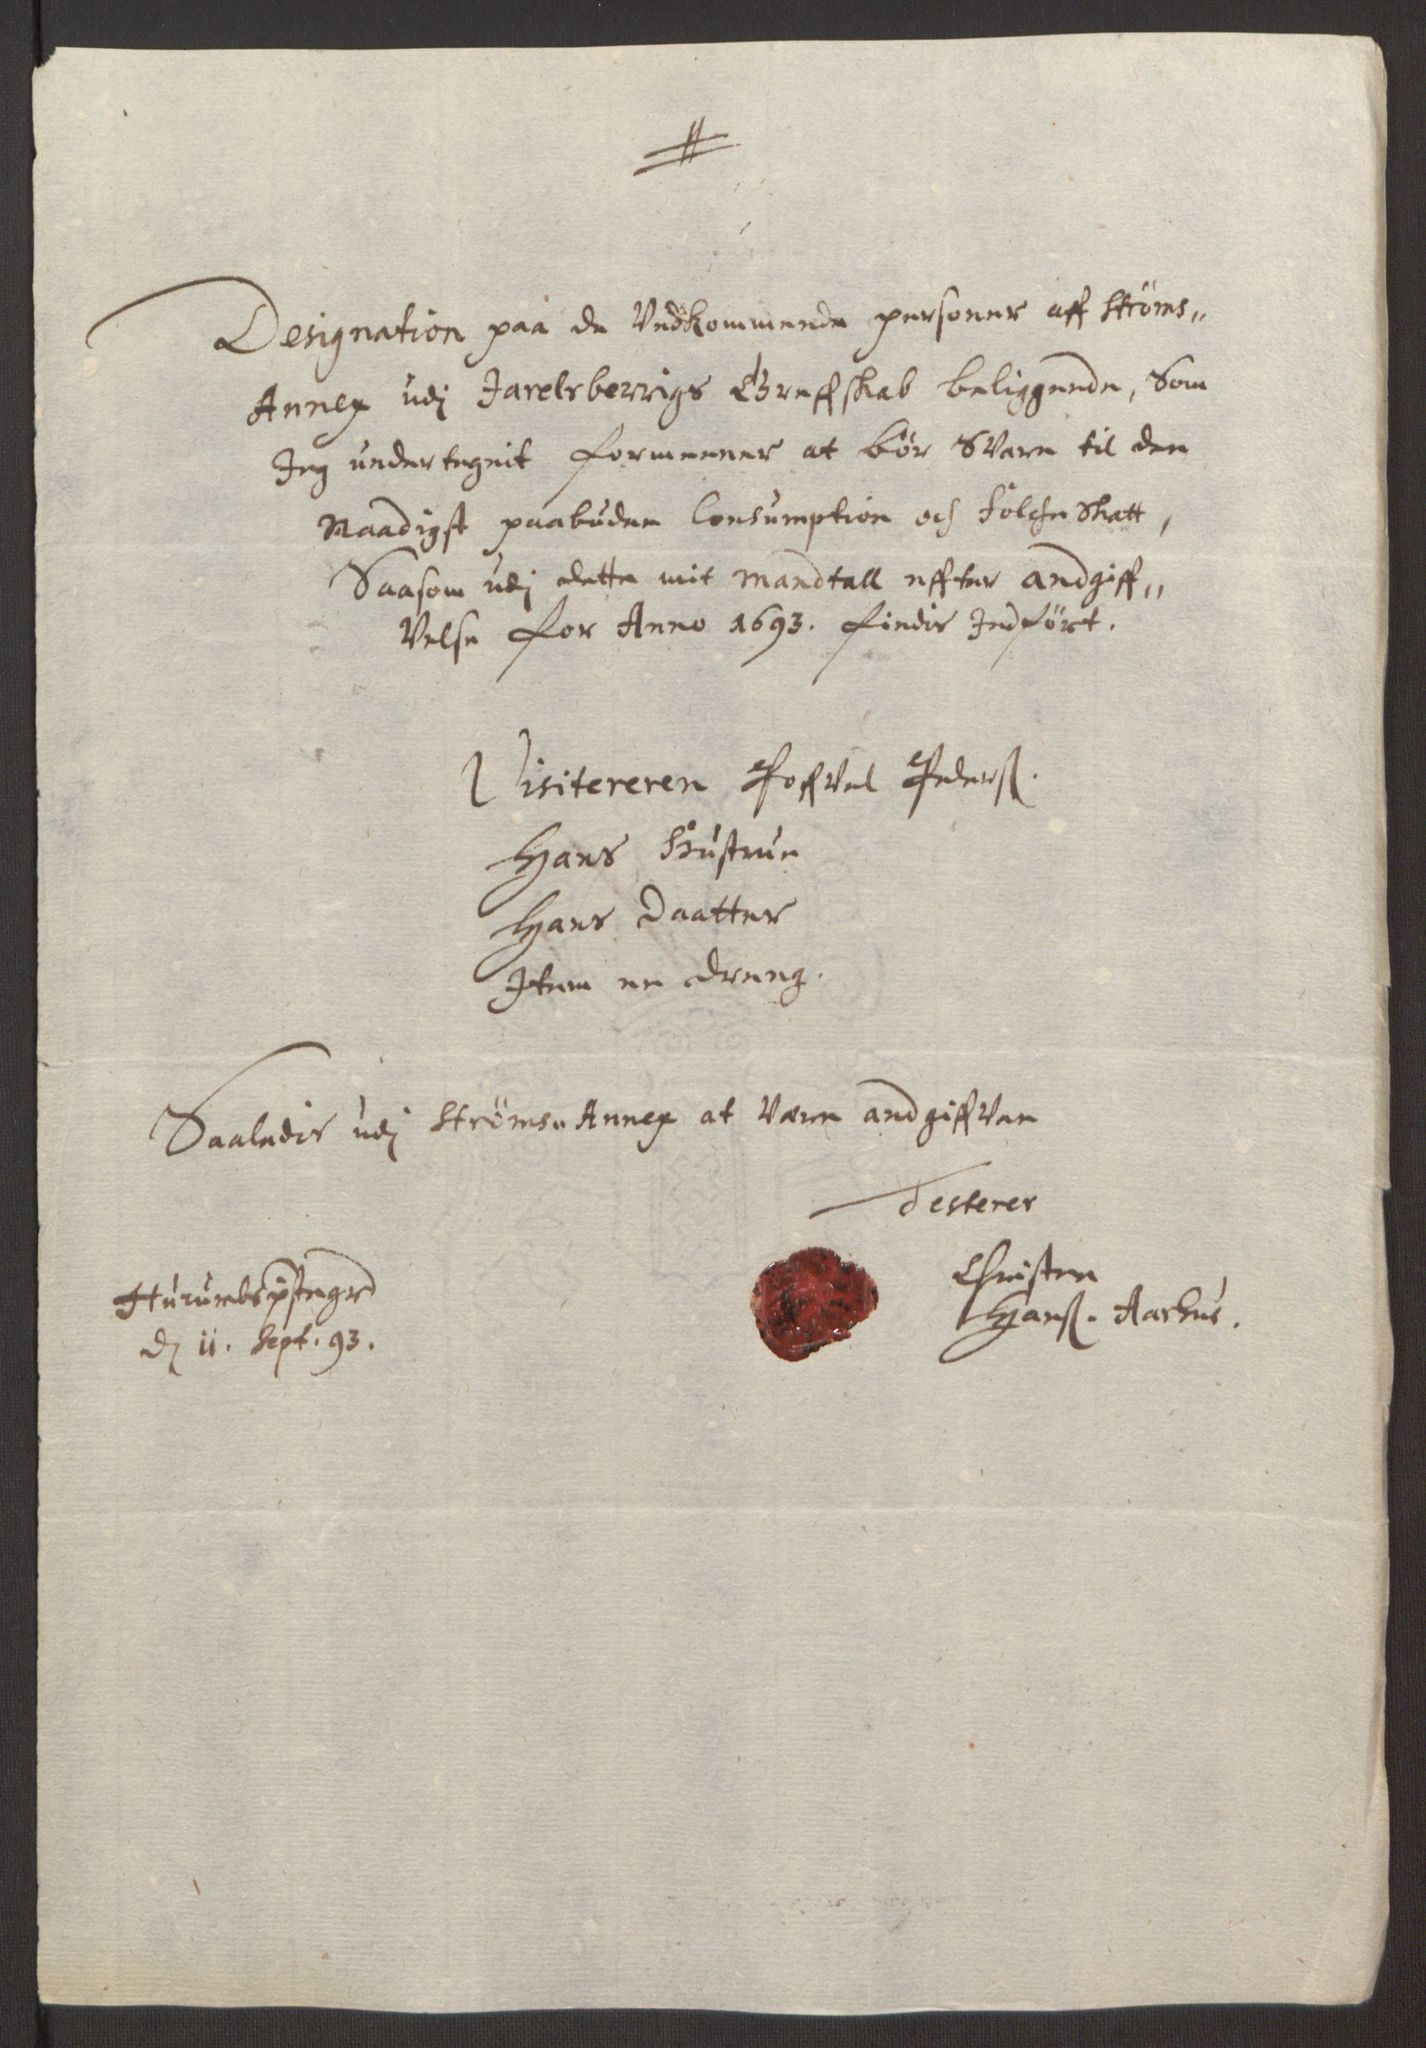 Designation paa de Vedkommende personer aff Ströms„
Annex udj Jarelsberrigs Greffskab beliggende, Som
Jeg undertegnit formeener at bör Svare til den
Naadigst paabudne Consumption och Folche Skatt,
Saasom udj dette mit Mandtall effter andgiff„
Velse for Anno 1693. findis Indfört.
Visitereren Poffvel Pederß.
Hans Hustrue
Hans Daatter
Item en dreng.
Saaledis udj Ströms„ Annex at Være andgiffven
Testerer
Christen
Hanß. Aarhus.
Hurumbs pstegrd
dj 11. Sept. 93.